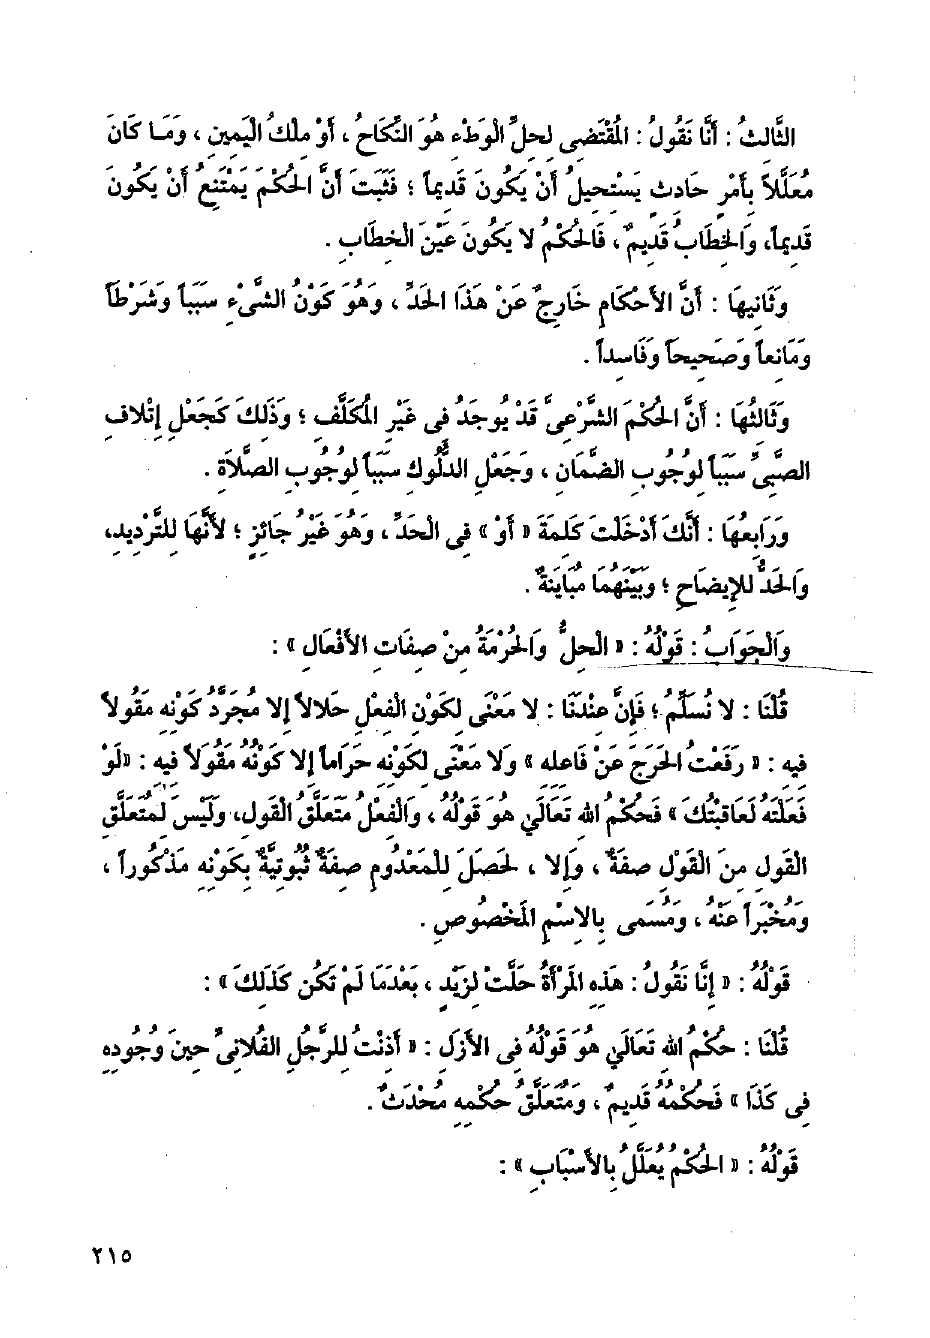 الثَّالثُ : أَنَّا نَقُولُ : المُقْتَضى لحلِّ الْوَطْء هُوَ النِّكَاحُ ، أَوْ ملْكُ الْيَمين ، وَمَا كَانَ
مُعَلَّلاً بأَمْر حَادث يَسْتَحيلُ أَنْ يَكُونَ قَديماً ؛ فَثَبَتَ أَنَّ الحُكْمَ يَمْتَنعُ أَنْ يَكُونَ
قَديماً، وَالخطَابُ قَديمٌ ، فَالحُكْمُ لا يَكُونُ عَيْنَ الْخطَاب .
وَثَانيهَا : أَنَّ الأَحْكَام خَارِجٌ عَنْ هَذَا الحَدِّ ، وَهُوَ كَوْنُ الشَّىْء سَبَباً وَشَرْطاً
وَمَانعاً وَصَحيحاً وَفَاسداً .
وَثَالثُهَا : أَنَّ الحُكْمَ الشَّرْعىَّ قَدْ يُوجَدُ فى غَيْر المُكَلَّف ؛ وَذَلكَ كَجَعْلِ إِتْلاف
الصَّبىِّ سَبَباً لوُجُوب الضَّمَان ، وَجَعْل الدُّلُوك سَبَباً لوُجُوب الصَّلاَة .
وَرَابعُهَا : أَنَّكَ أَدْخَلْتَ كَلمَةَ « أَوْ » فِى الْحَدِّ ، وَهُوَ غَيْرُ جَائز ؛ لأَنَّهَا للتَّرْديد،
وَالحَدُّ للإيضَاح ؛ وَبَيْنَهُمَا مُبَايَنَةٌ .
وَالْجَوَابُ : قَوْلُهُ : « الْحلُّ وَالحُرْمَةُ منْ صفَات الأَفْعَال » :
قُلْنَا : لا نُسَلِّمُ ؛ فَإِنَّ عنْدَنَا : لا مَعْنَى لكَوْن الْفعْل حَلالاً إلا مُجَرَّدُ كَوْنه مَقُولاً
فيه : « رَفَعْتُ الحَرَجَ عَنْ فَاعله » وَلا مَعْنَى لكَوْنه حَرَاماً إلا كَوْنُهُ مَقُولاً فيه : «لَوْ
فَعَلْتَهُ لَعَاقَبْتُكَ » فَحُكْمُ الله تَعَالَىٰ هُوَ قَوْلُهُ ، وَالْفعْلُ مُتَعَلَّقُ الْقَول، وَلَيْسَ لمُتَعَلَّق
الْقَول منَ الْقَوْل صفَةٌ ، وَإلا ، لَحَصَلَ للْمَعْدُوم صفَةٌ ثُبُوتيَّةٌ بكَوْنه مَذْكُوراً ،
وَمُخْبَراً عَنْهُ ، وَمُسَمى بالاسْم المَخْصُوص .
قَوْلُهُ : « إنَّا نَقُولُ : هَذه المَرْأَةُ حَلَّتْ لزَيْد ، بَعْدَمَا لَمْ تَكُن كَذَلكَ » :
قُلْنَا : حُكْمُ الله تَعَالَىٰ هُوَ قَوْلُهُ فى الأَزَل : « أَذنْتُ للرَّجُل الفُلانىِّ حينَ وُجُوده
فى كَذَا » فَحُكْمُهُ قَديمٌ ، وَمُتَعَلَّقُ حُكْمه مُحْدَثٌ .
قَوْلُهُ : « الحُكْمُ يُعَلَّلُ بالأَسْبَاب » :
٢١٥